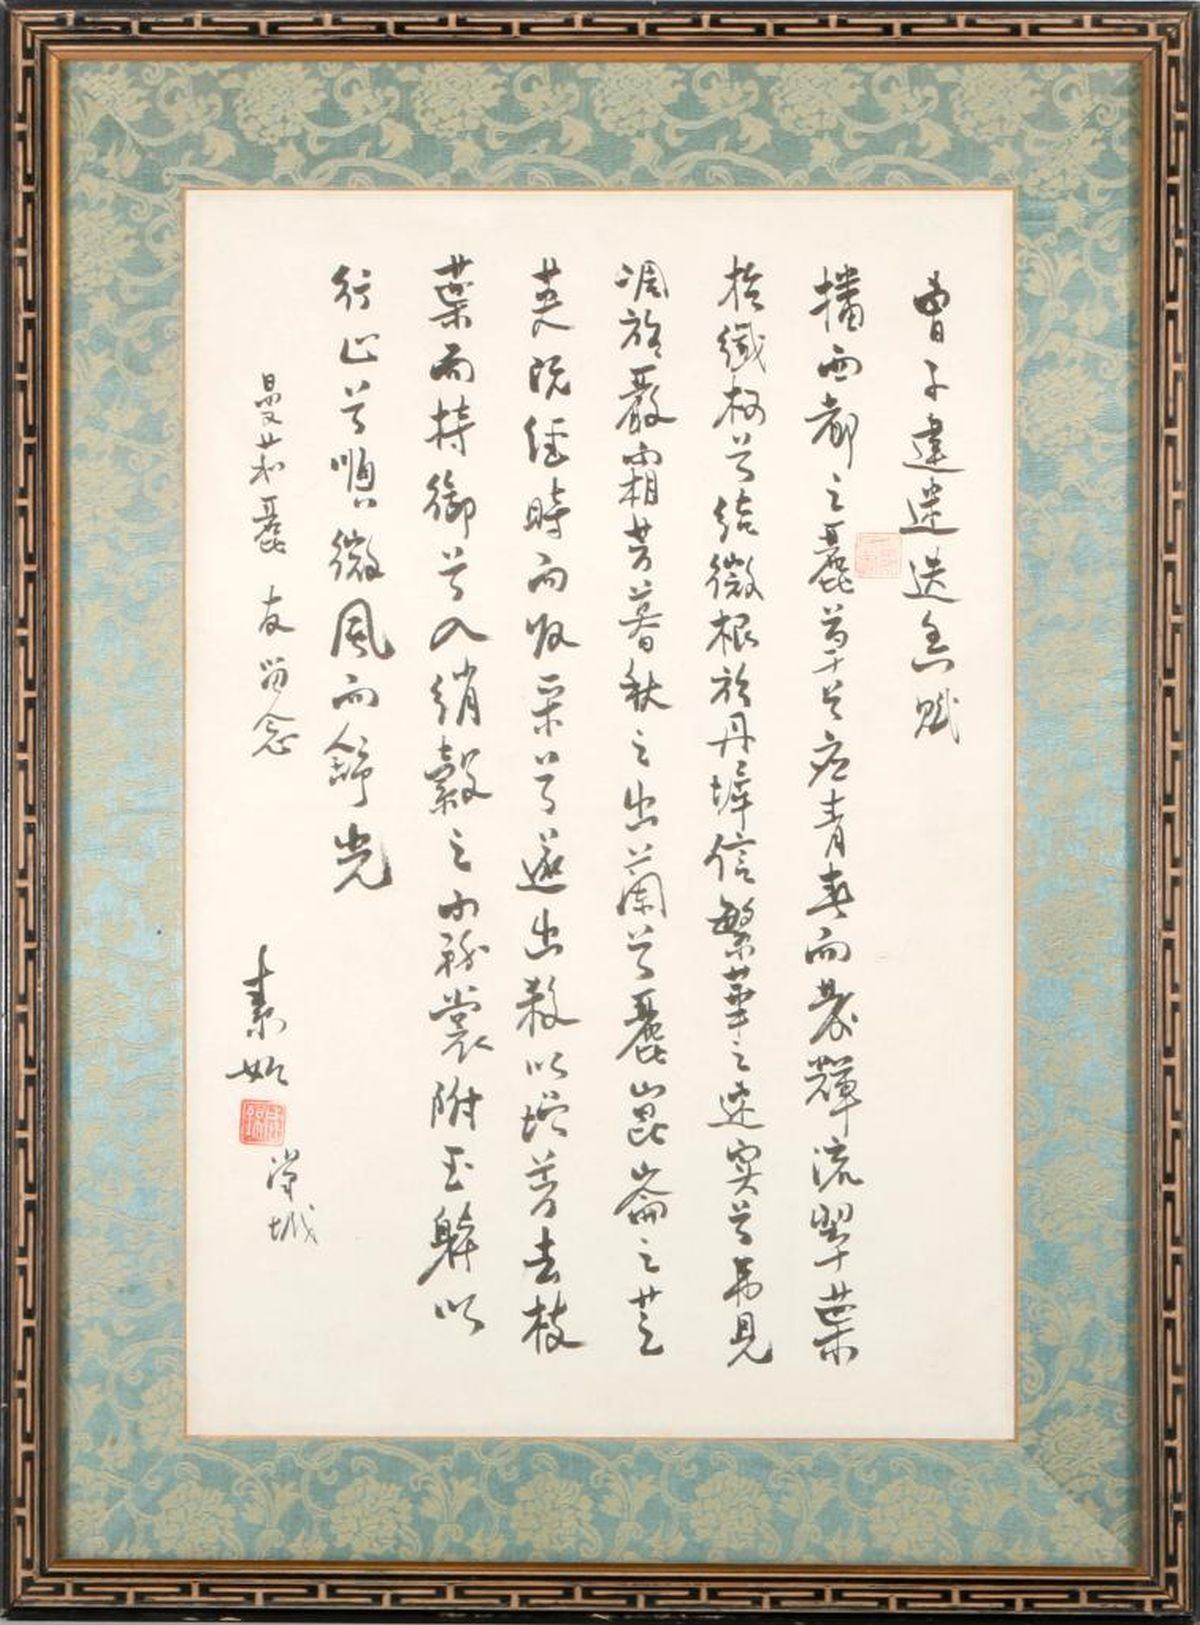 曹子建迷迭香賦
播西都之麗草兮應青春而發輝流翠葉
於纖柯兮結微根於丹墀信繁華之速實兮弗見
凋於嚴霜芳暮秋之幽蘭兮麗崑崙之芝
英既經時而收采兮遂幽殺以增芳去枝
葉而持御兮入綃縠之霧裳附玉體以
行止兮順微風而舒光
曼莉麗 友留念
素如